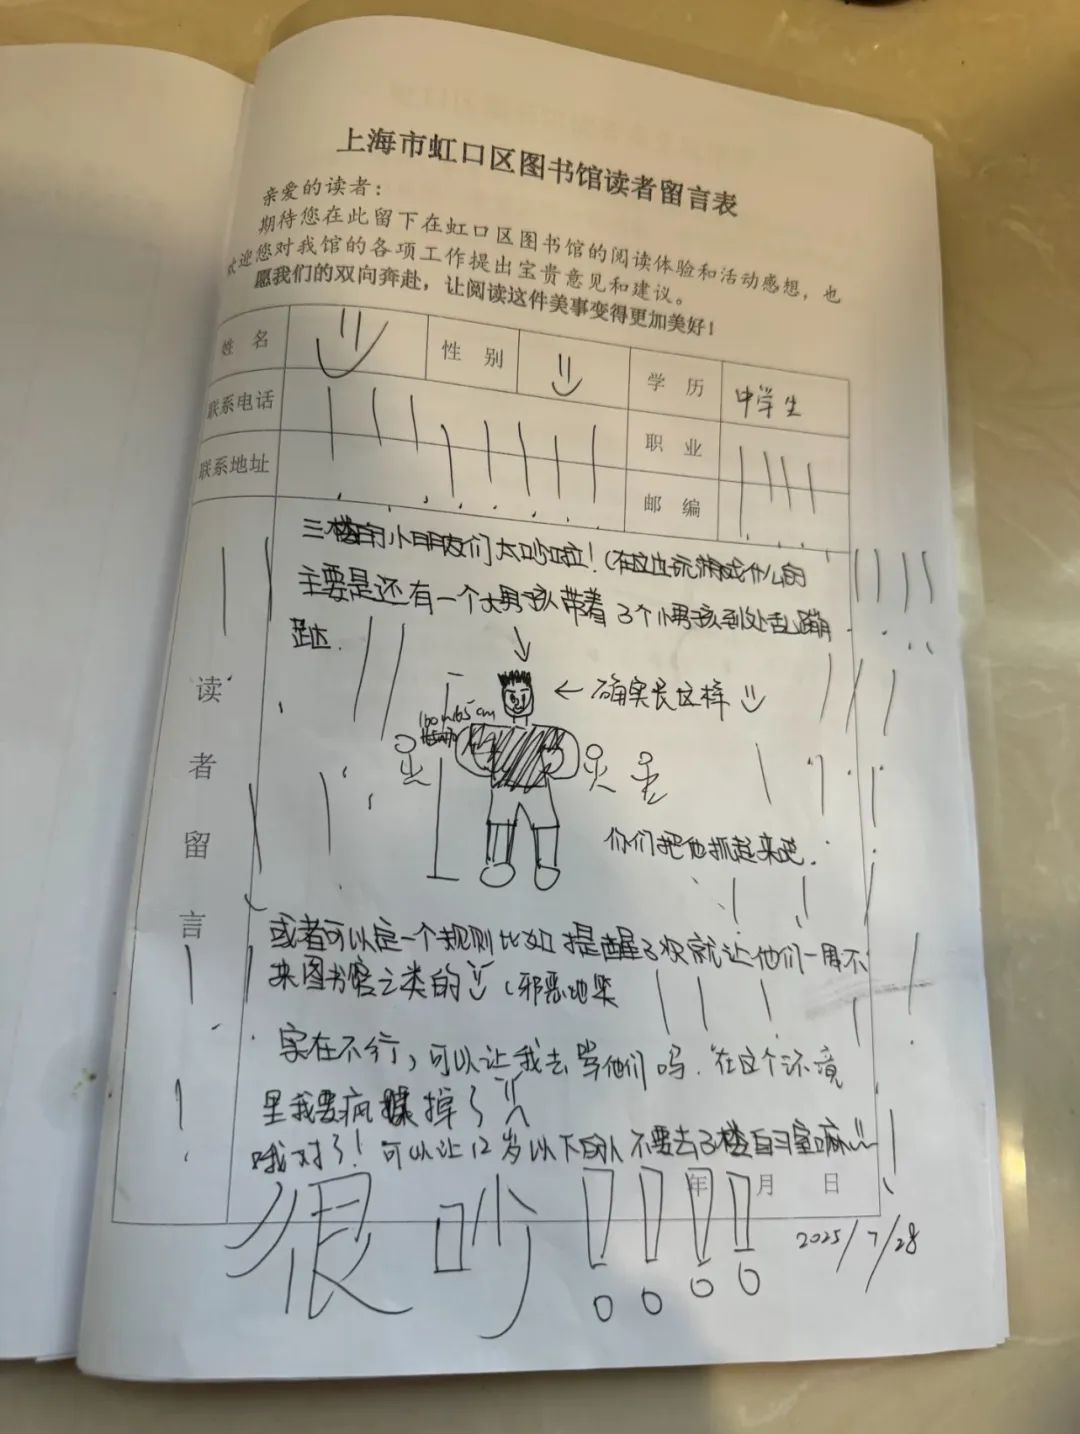 上海市虹口区图书馆读者留言表
亲爱的读者：
期待您在此留下在虹口区图书馆的阅读体验和活动感想，也
欢迎您对我馆的各项工作提出宝贵意见和建议。
愿我们的双向奔赴，让阅读这件美事变得更加美好！
姓 名
性 别
学 历 中学生
联系电话
职 业
联系地址
邮 编
读者留言
三楼的小朋友们太吵啦！（在这边玩游戏什么的
主要是还有一个大男孩带着3个小男孩到处乱蹦
跶.
← 确实长这样
160~165cm
你们把他抓起来吧.
或者可以定一个规则比如提醒3次就让他们一周不
来图书馆之类的（邪恶地笑
实在不行，可以让我去骂他们吗.在这个环境
里我要疯掉了
哦对了！可以让12岁以下的人不要去3楼自习室嘛
年 月 日
很吵！！！！
2025/7/28